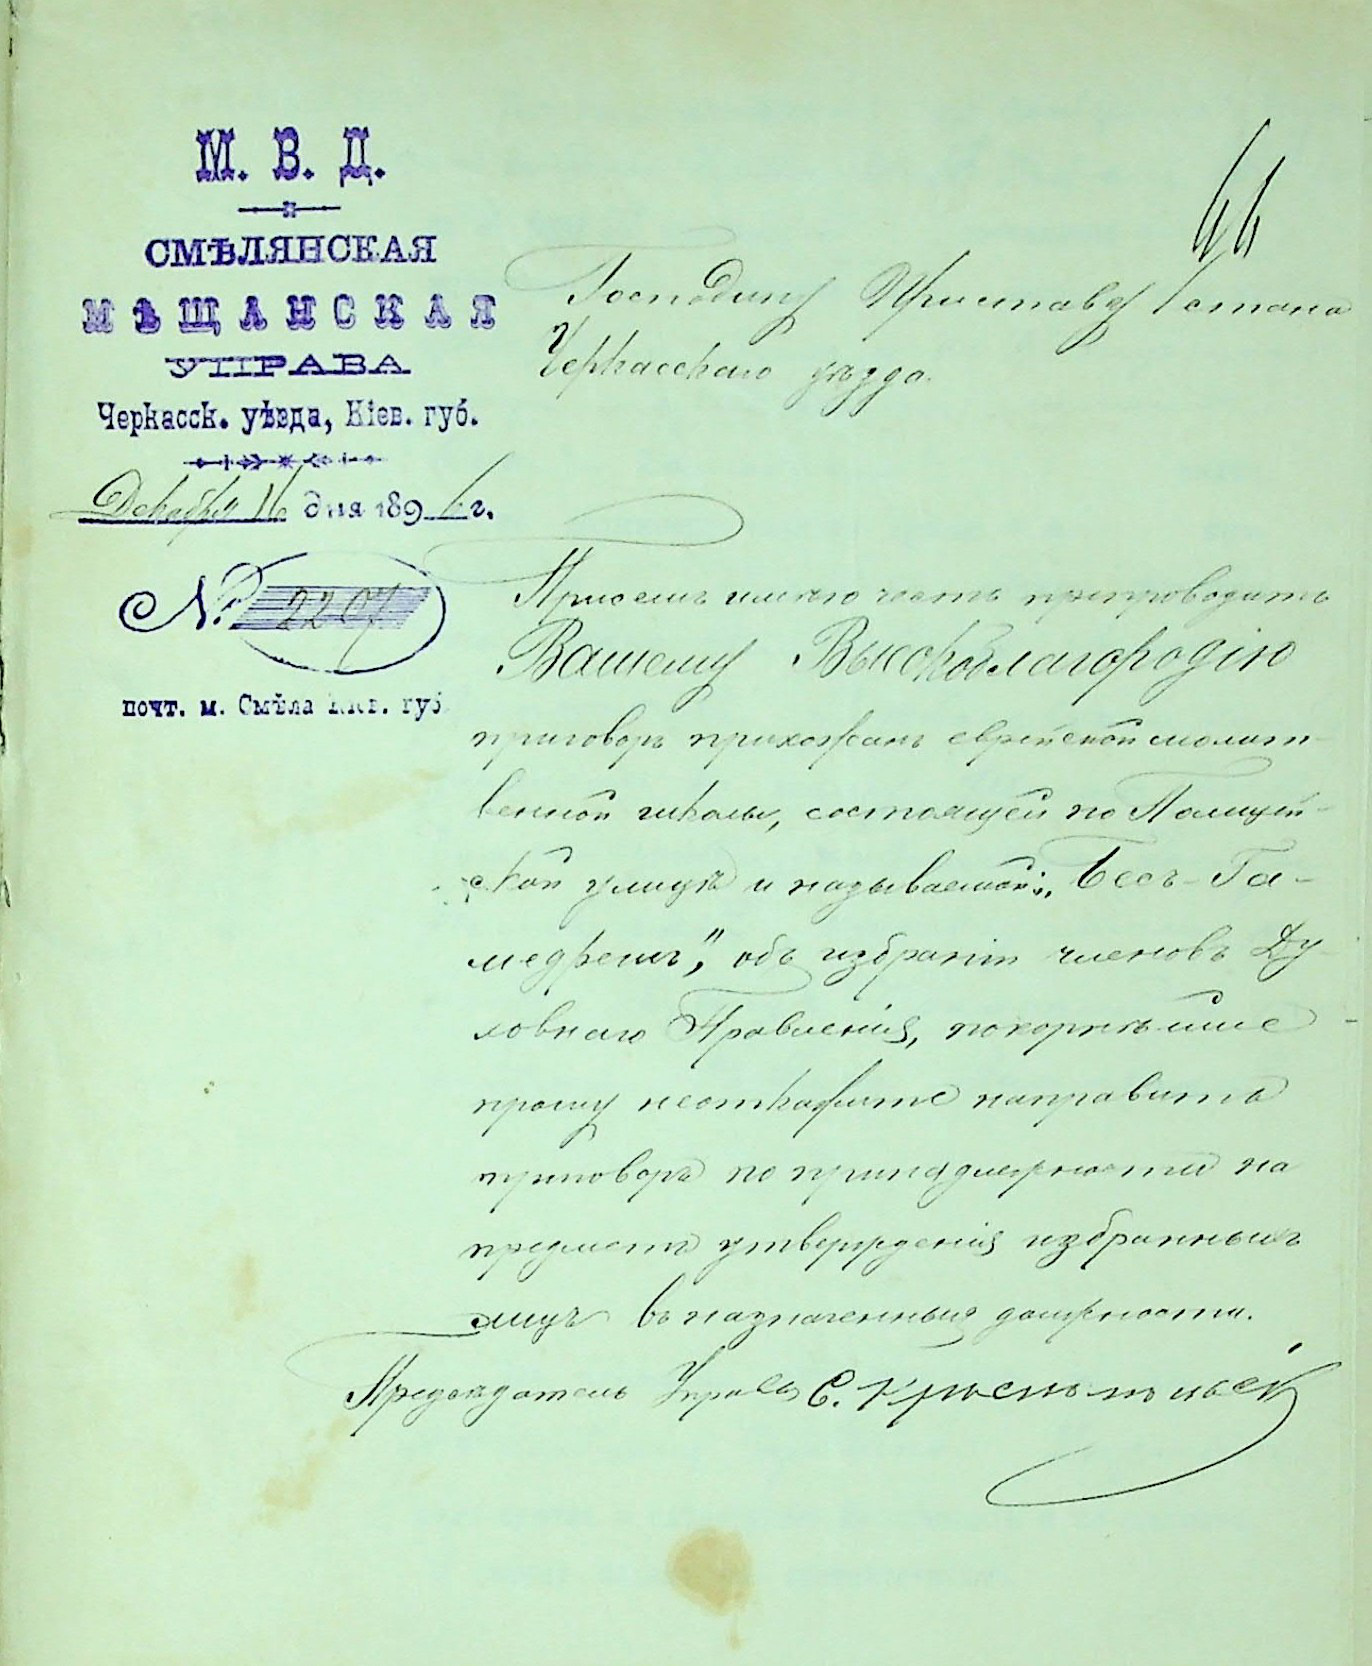 М. В. Д.
СМѢЛЯНСКАЯ
МѢЩАНСКАЯ
УПРАВА
Черкасск. уѣзда, Кіев. губ.
Декабря 16 дня 1896 г.
№ 2207
почт. м. Смѣла Кіев. губ.
44
Господину Приставу 1 стана
Черкасскаго уѣзда.
Присемъ имѣю честь препроводить
Вашему Высокоблагородію
приговоръ прихожанъ еврейской молит-
венной школы, состоящей по Полицей-
ской улицѣ и называемой: „Бесъ-Га-
медрешъ", объ избраніи членовъ Ду-
ховнаго Правленія, покорнѣйше
прошу неоткажите направить
приговоръ по принадлежности на
предметъ утвержденія избранныхъ
лицъ въ назначенныя должности.
Предсѣдатель Управы С.